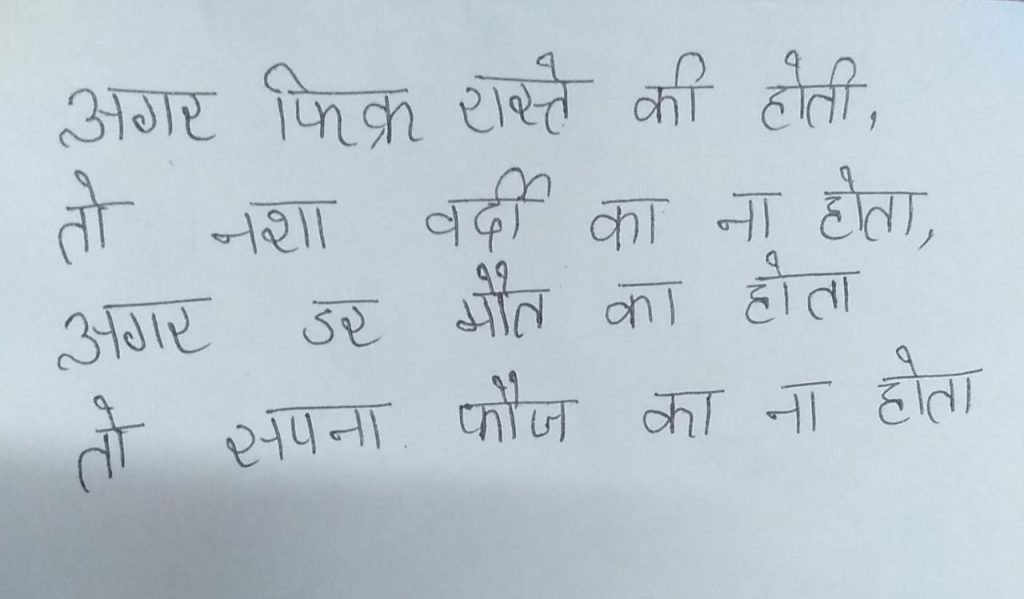 अगर फिक्र रास्ते की होती,
तो नशा वर्दी का ना होता,
अगर डर मौत का होता
तो सपना फौज का ना होता